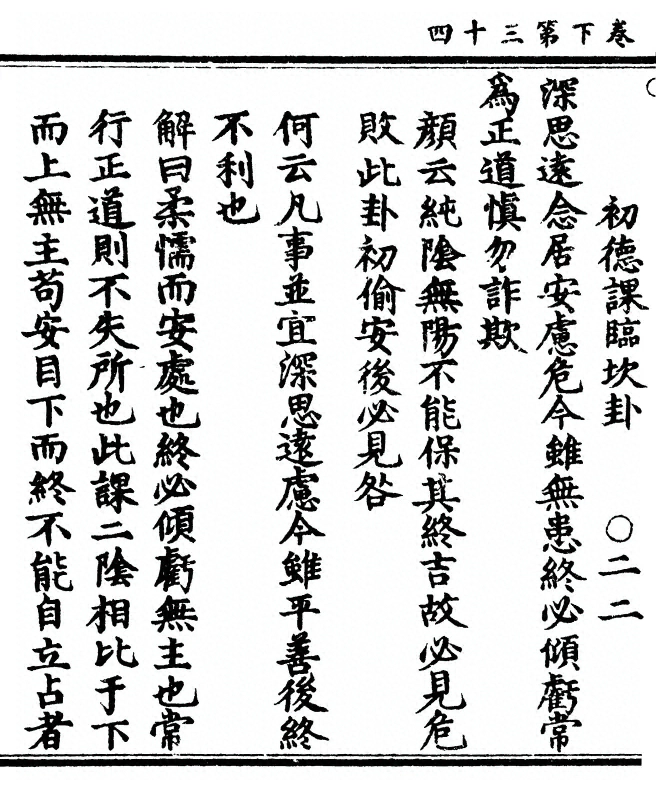 卷下第三十四
初德課臨坎卦　〇二二
深思遠念居安慮危今雖無患終必傾虧常
為正道慎勿詐欺
顏云純陰無陽不能保其終吉故必見危
敗此卦初偷安後必見咎
何云凡事並宜深思遠慮今雖平善後終
不利也
解曰柔懦而安處也終必傾虧無主也常
行正道則不失所也此課二陰相比于下
而上無主苟安目下而終不能自立占者